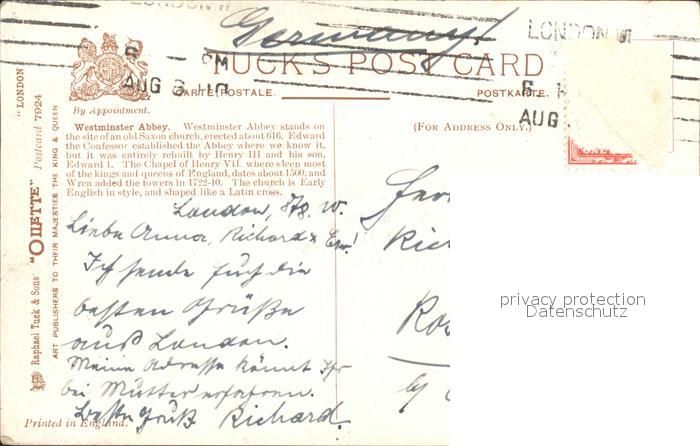 LONDON W
Germany!
LONDON W
6 PM
AUG 3 10
6
AUG
TUCK'S POST CARD
CARTE POSTALE. POSTKARTE.
By Appointment.
(FOR ADDRESS ONLY.)
Westminster Abbey. Westminster Abbey stands on
the site of an old Saxon church, erected about 616. Edward
the Confessor established the Abbey where we know it,
but it was entirely rebuilt by Henry III and his son,
Edward I. The Chapel of Henry VII. where sleep most
of the kings and queens of England, dates about 1500, and
Wren added the towers in 1722-40. The church is Early
English in style, and shaped like a Latin cross.
"LONDON"
Raphael Tuck & Sons' "OILETTE" Postcard 7924
ART PUBLISHERS TO THEIR MAJESTIES THE KING & QUEEN
London, W.
Liebe Anna, Richard &
Ich sende Euch die
besten Grüße
aus London.
Meine Adresse könnt Ihr
bei Mutter erfahren.
Besten Gruß Richard.
Printed in England.
privacy protection
Datenschutz